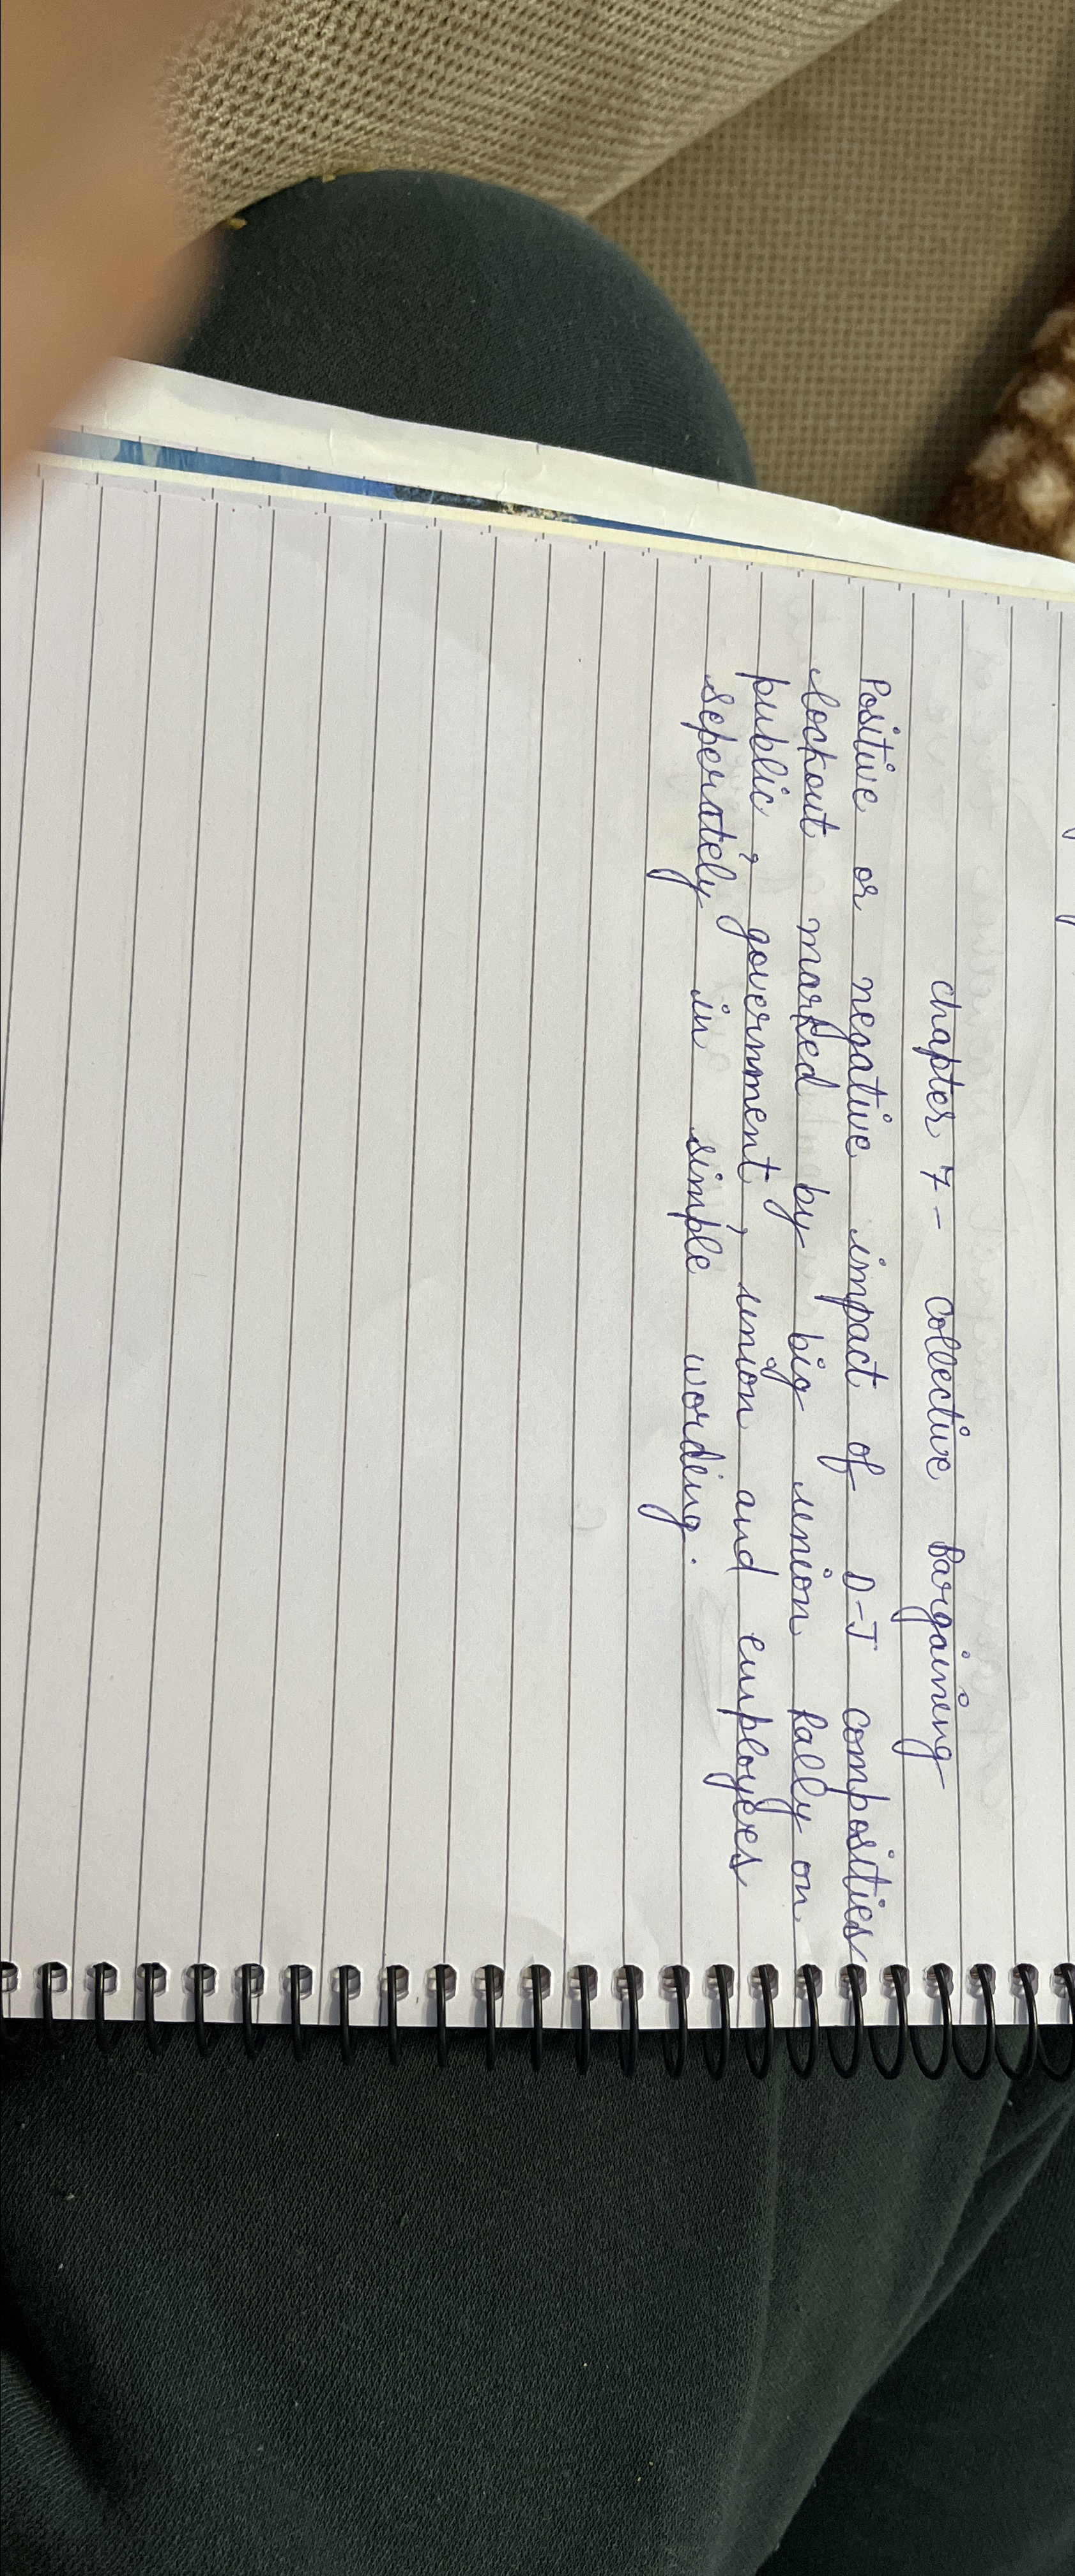 chapter 7- Collective Bargaining
Positive or negative impact of D-J composities
lockout marked by big union Rally on
public, government, union and employees
seperately in simple wording.